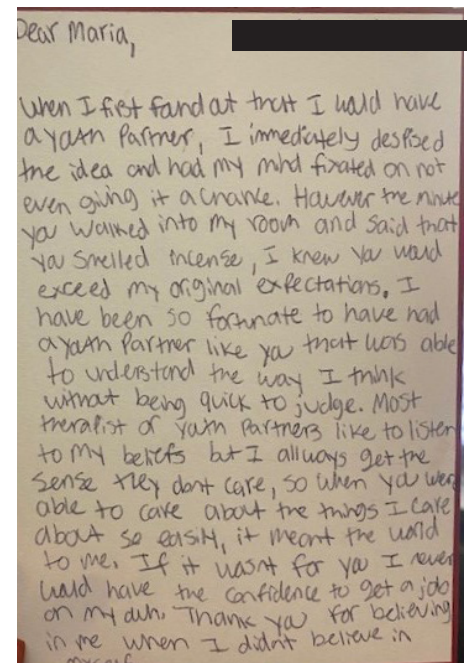 Dear Maria,
When I first fand at that I wald have
a yath Partner, I immediately despised
the idea and had my mind fixated on not
even giving it a chance. However the minute
you walked into my room and said that
you smelled incense, I knew you would
exceed my original expectations. I
have been so fortunate to have had
a yath Partner like you that was able
to understand the way I think
without being quick to judge. Most
therapist or yath Partners like to listen
to my beliefs but I allways get the
sense they dont care, so when you were
able to care about the things I care
about so easily, it meant the world
to me. If it wasnt for you I never
wald have the confidence to get a job
on my own. Thank you for believing
in me when I didn't believe in